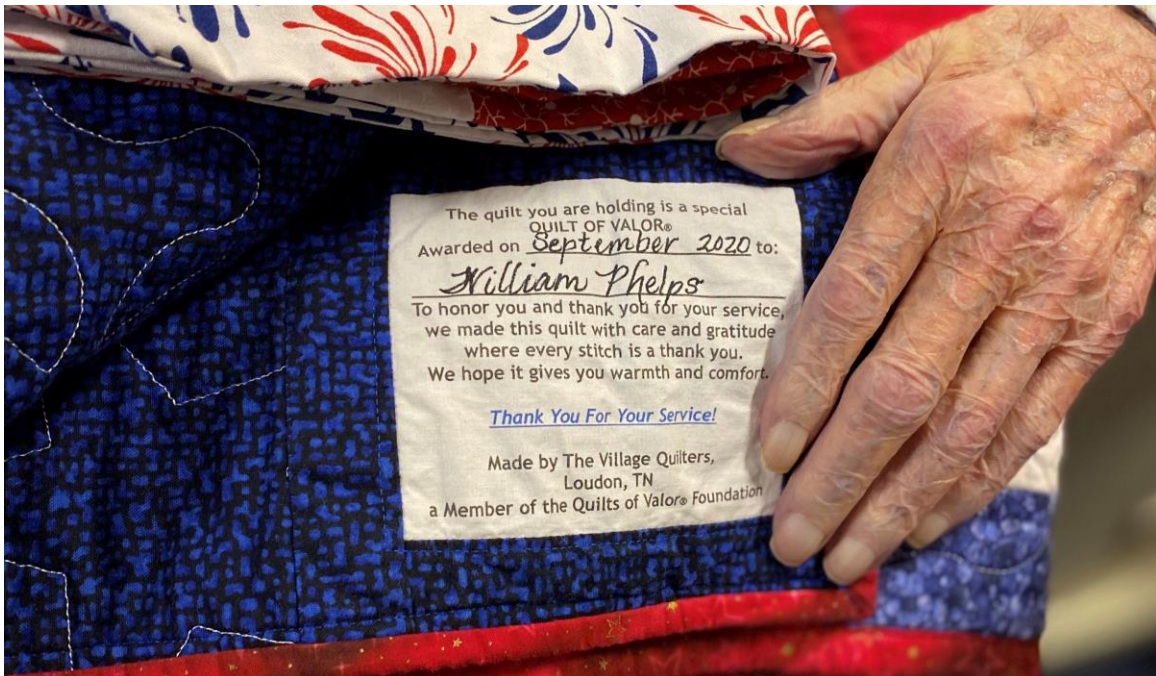 The quilt you are holding is a special
QUILT OF VALOR®
Awarded on September 2020 to:
William Phelps
To honor you and thank you for your service,
we made this quilt with care and gratitude
where every stitch is a thank you.
We hope it gives you warmth and comfort.
Thank You For Your Service!
Made by The Village Quilters,
Loudon, TN
a Member of the Quilts of Valor® Foundation